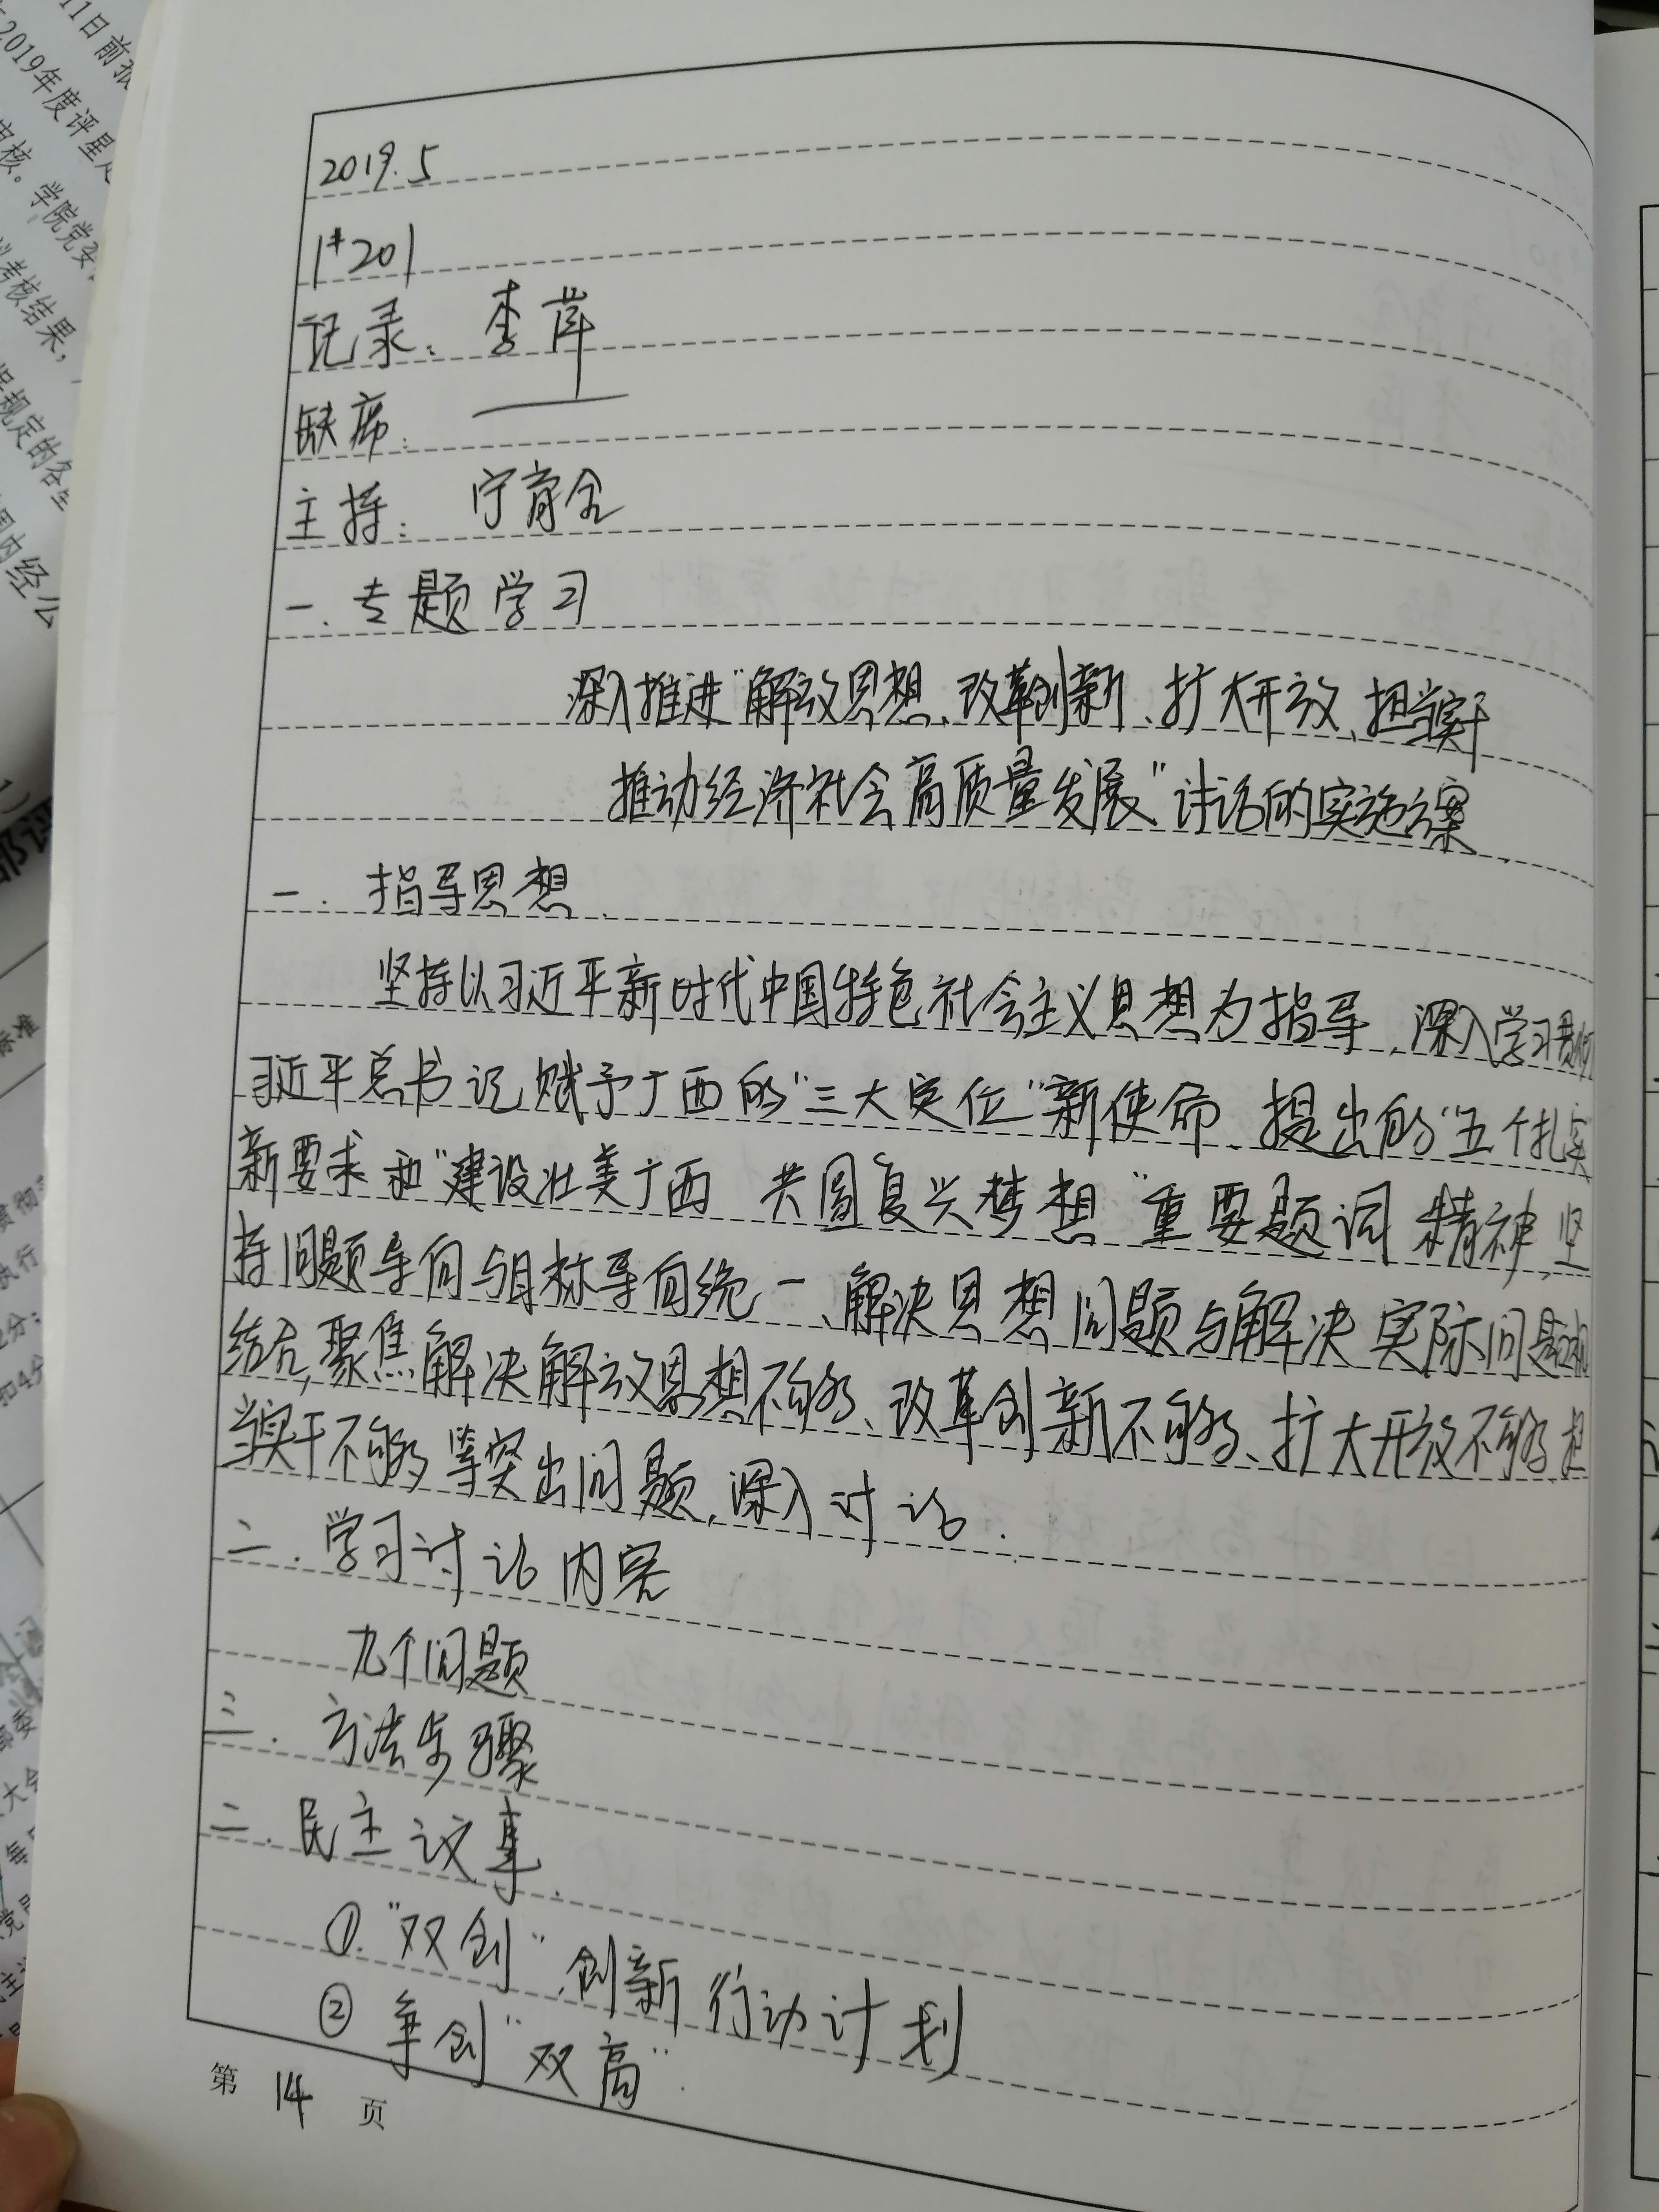 2019.5
1#201
记录：李萍
缺席：
主持：宁育全
一.专题学习
深入推进"解放思想、改革创新、扩大开放、担当实干
推动经济社会高质量发展"讨论的实施方案
一.指导思想
坚持以习近平新时代中国特色社会主义思想为指导,深入学习贯彻
习近平总书记赋予广西的"三大定位"新使命、提出的"五个扎实
新要求和"建设壮美广西 共圆复兴梦想"重要题词精神,坚
持问题导向与目标导向统一、解决思想问题与解决实际问题相
结合,聚焦解决解放思想不够、改革创新不够、扩大开放不够、担
当实干不够等突出问题,深入讨论.
二.学习讨论内容
九个问题
三.方法步骤
二.民主议事.
①."双创",创新行动计划
② 争创"双高".
第 14 页
11日前报
2019年度评星
审核。学院党委
考核结果，
规定的各